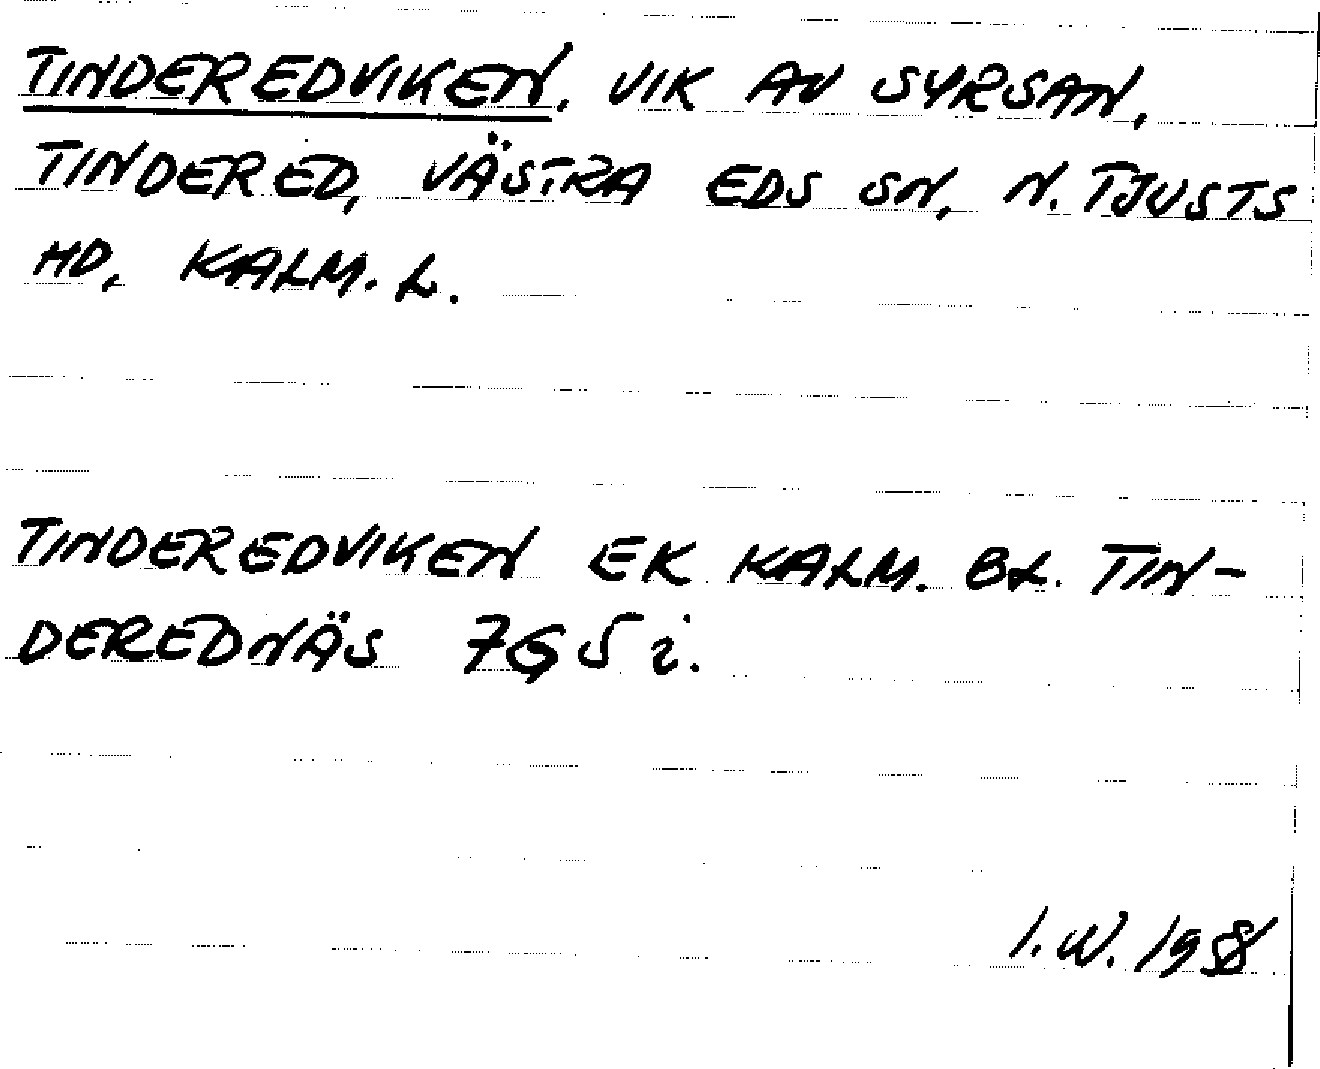 TINDEREDVIKEN. VIK AV SYRSAN,
TINDERED, VÄSTRA EDS SN, N. TJUSTS
HD, KALM. L.
TINDEREDVIKEN EK KALM. BL. TIN-
DEREDNÄS 7G5i.
I.W.